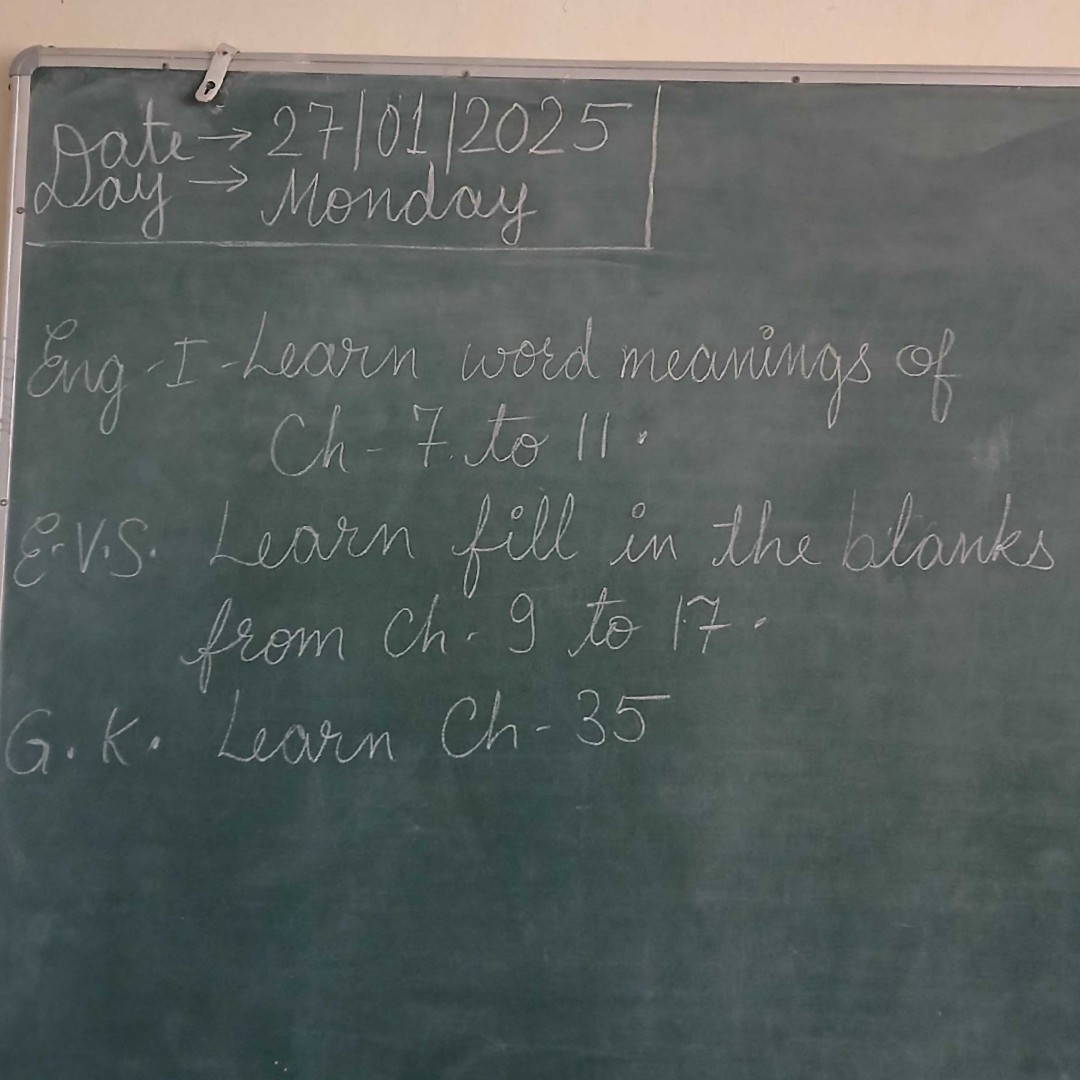 Date → 27/01/2025
Day → Monday
Eng-I-Learn word meanings of
Ch-7 to 11.
E.V.S. Learn fill in the blanks
from Ch-9 to 17.
G.K. Learn Ch-35